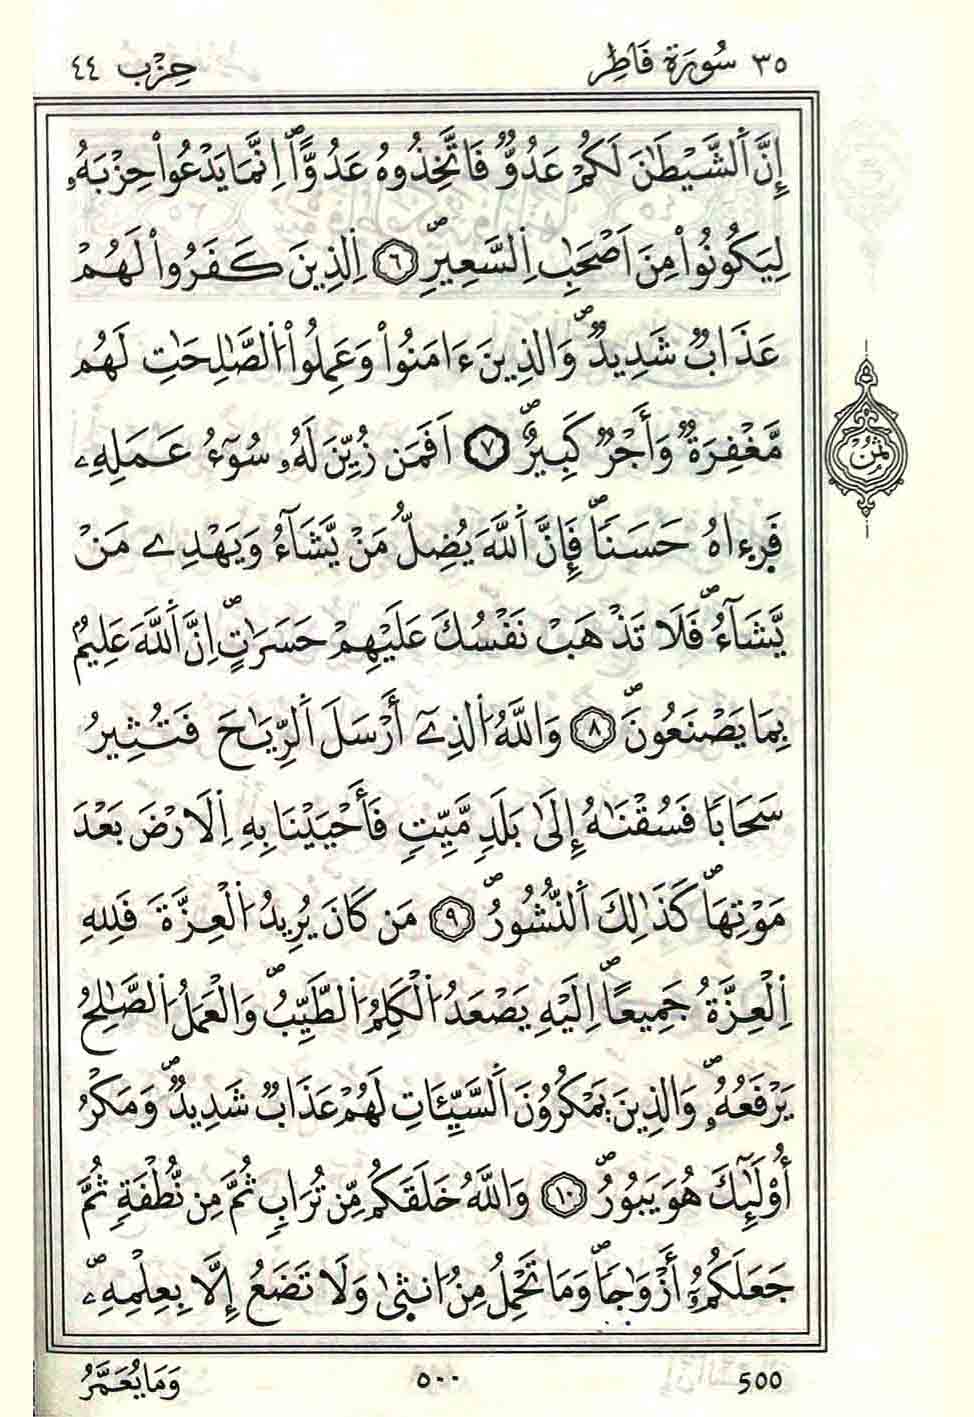 ٣٥ سُورَة فَاطِر حِزْب ٤٤
إِنَّ اَ۬لشَّيْطَٰنَ لَكُمْ عَدُوّٞ فَاتَّخِذُوهُ عَدُوًّاۖ اِنَّمَا يَدْعُواْ حِزْبَهُۥ
لِيَكُونُواْ مِنَ اَصْحَٰبِ اِ۬لسَّعِيرِۖ ٦ اِ۬لذِينَ كَفَرُواْ لَهُمْ
عَذَابٞ شَدِيدٞۖ وَالذِينَ ءَامَنُواْ وَعَمِلُواْ اُ۬لصَّٰلِحَٰتِ لَهُم
مَّغْفِرَةٞ وَأَجْرٞ كَبِيرٌۖ ٧ اَفَمَن زُيِّنَ لَهُۥ سُوٓءُ عَمَلِهِۦ
فَرِءٰاهُ حَسَناٗۖ فَإِنَّ اَ۬للَّهَ يُضِلُّ مَنْ يَّشَآءُ وَيَهْدِے مَنْ
يَّشَآءُۖ فَلَا تَذْهَبْ نَفْسُكَ عَلَيْهِمْ حَسَرَٰتٍۖ اِنَّ اَ۬للَّهَ عَلِيمُۢ
بِمَا يَصْنَعُونَۖ ٨ وَاللَّهُ اُ۬لذِےٓ أَرْسَلَ اَ۬لرِّيَٰحَ فَتُثِيرُ
سَحَاباٗ فَسُقْنَٰهُ إِلَىٰ بَلَدٖ مَّيِّتٖ فَأَحْيَيْنَا بِهِ اِ۬لَارْضَ بَعْدَ
مَوْتِهَاۖ كَذَٰلِكَ اَ۬لنُّشُورُۖ ٩ مَن كَانَ يُرِيدُ اُ۬لْعِزَّةَ فَلِلهِ
اِ۬لْعِزَّةُ جَمِيعاًۖ اِلَيْهِ يَصْعَدُ اُ۬لْكَلِمُ اُ۬لطَّيِّبُۖ وَالْعَمَلُ اُ۬لصَّٰلِحُ
يَرْفَعُهُۥۖ وَالذِينَ يَمْكُرُونَ اَ۬لسَّيِّـَٔاتِ لَهُمْ عَذَابٞ شَدِيدٞۖ وَمَكْرُ
أُوْلَٰٓئِكَ هُوَ يَبُورُۖ ١٠ وَاللَّهُ خَلَقَكُم مِّن تُرَابٖ ثُمَّ مِن نُّطْفَةٖ ثُمَّ
جَعَلَكُمُۥٓ أَزْوَٰجاٗۖ وَمَا تَحْمِلُ مِنُ ا۟نثَىٰ وَلَا تَضَعُ إِلَّا بِعِلْمِهِۦۖ
ثُمُن
500 ٥٠٠ وَمَا يُعَمَّرُ